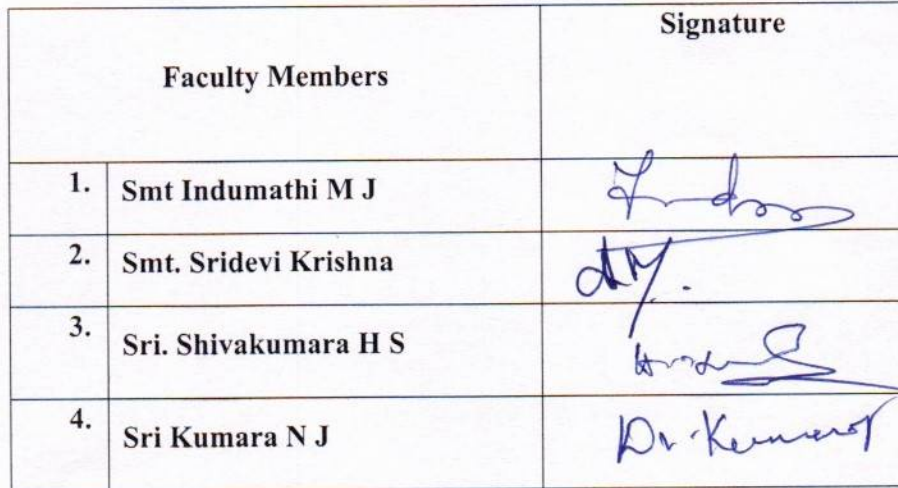 Faculty Members
Signature
1. Smt Indumathi M J
2. Smt. Sridevi Krishna
3. Sri. Shivakumara H S
4. Sri Kumara N J Dr. Kumara